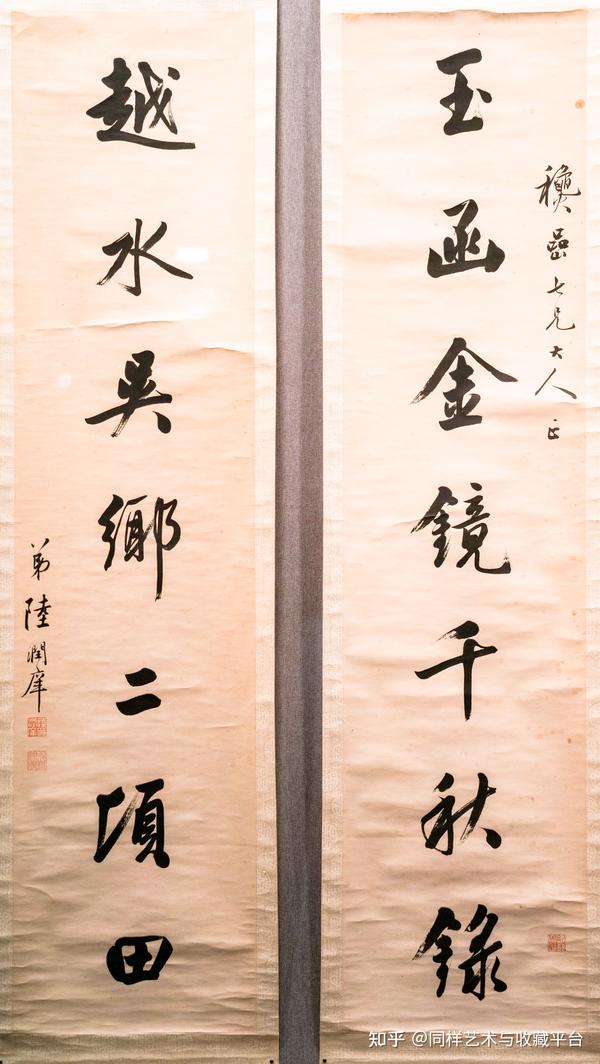 玉函金鏡千秋錄
七兄大人正
越水吳鄉二頃田
弟陸潤庠
知乎 @同样艺术与收藏平台